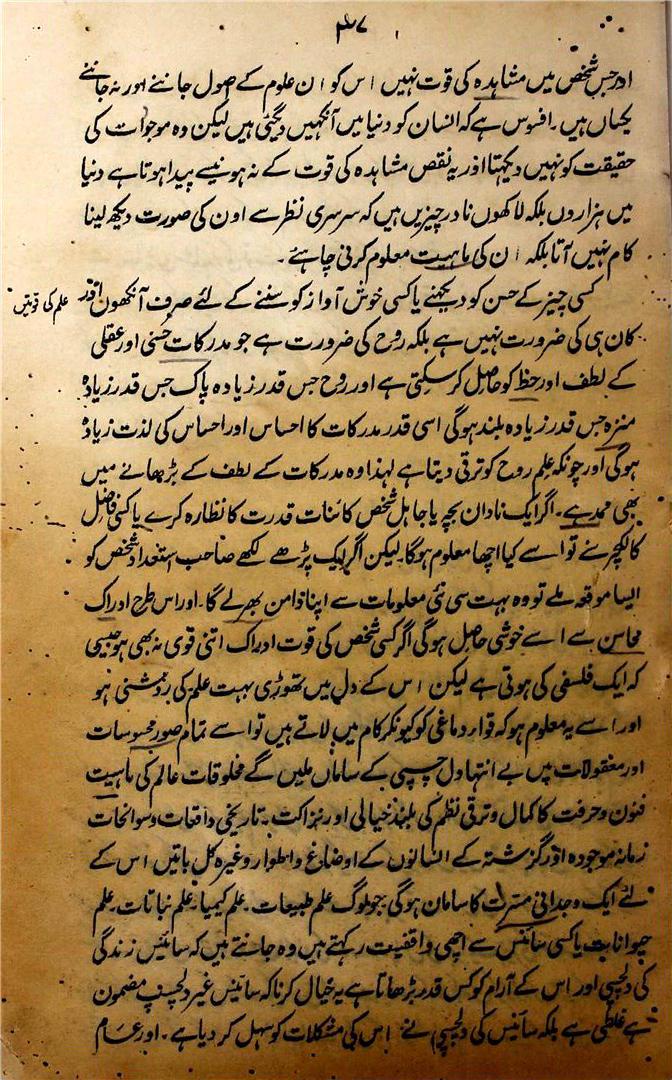 ۳۷
اور جس شخص میں مشاہدہ کی قوت نہیں اس کو ان علوم کے اصول جاننے اور نہ جاننے
یکساں ہیں۔ افسوس ہے کہ انسان کو دنیا میں آنکہیں دیگئی ہیں لیکن وہ موجوات کی
حقیقت کو نہیں دیکہتا اور یہ نقص مشاہدہ کی قوت کے نہ ہونیسے پیدا ہوتا ہے دنیا
میں ہزاروں بلکہ لاکھوں نادر چیزیں ہیں کہ سرسری نظر سے اون کی صورت دیکھ لینا
کام نہیں آتا بلکہ ان کی ماہیت معلوم کرنی چاہئے۔
علم کی قوتیں
کسی چیز کے حسن کو دیکہنے یا کسی خوش آواز کو سننے کے لئے صرف آنکھوں اور
کان ہی کی ضرورت نہیں ہے بلکہ روح کی ضرورت ہے جو مدرکات حسّی اور عقلی
کے لطف اور حظ کو حاصل کر سکتی ہے اور روح جس قدر زیادہ پاک جس قدر زیادہ
منزہ جس قدر زیادہ بلند ہوگی اسی قدر مدرکات کا احساس اور احساس کی لذت زیادہ
ہوگی اور چونکہ علم روح کو ترقی دیتا ہے لہذا وہ مدرکات کے لطف کے بڑھانے میں
بھی ممد ہے۔ اگر ایک نادان بچہ یا جاہل شخص کائنات قدرت کا نظارہ کرے یا کسی فاضل
کا لکچر سنے تو اسے کیا اچھا معلوم ہوگا۔ لیکن اگر ایک پڑھے لکھے صاحب استعداد شخص کو
ایسا موقعہ ملے تو وہ بہت سی نئی معلومات سے اپنا دامن بھر لے گا۔ اور اس طرح ادراک
محاسن سے اسے خوشی حاصل ہوگی اگر کسی شخص کی قوت ادراک اتنی قوی نہ بھی ہو جیسی
کہ ایک فلسفی کی ہوتی ہے لیکن اس کے دل میں تھوڑی بہت علم کی روشنی ہو
اور اسے یہ معلوم ہو کہ قواء دماغی کو کیونکر کام میں لاتے ہیں تو اسے تمام صور محسوسات
اور معقولات میں بے انتہا دل چسپی کے ساماں ملیں گے مخلوقات عالم کی ماہیت
فنون و حرفت کا کمال و ترقی نظم کی بلند خیالی اور نزاکت۔ تاریخی واقعات و سوانحات
زمانہ موجودہ اور گزشتہ کے انسانوں کے اوضاع و اطوار وغیرہ کل باتیں اس کے
لئے ایک وجدانی مسرت کا سامان ہوگی۔ جو لوگ علم طبیعات۔ علم کیمیا۔ علم نباتات۔ علم
حیوانات یا کسی سائنس سے اچھی واقفیت رکہتے ہیں وہ جانتے ہیں کہ سائنس زندگی
کی دلچسپی اور اس کے آرام کو کس قدر بڑھاتا ہے یہ خیال کرنا کہ سائنس غیر دلچسپ مضمون
ہے غلطی ہے بلکہ سائنس کی دلچسپی نے اس کی مشکلات کو سہل کر دیا ہے۔ اور عام